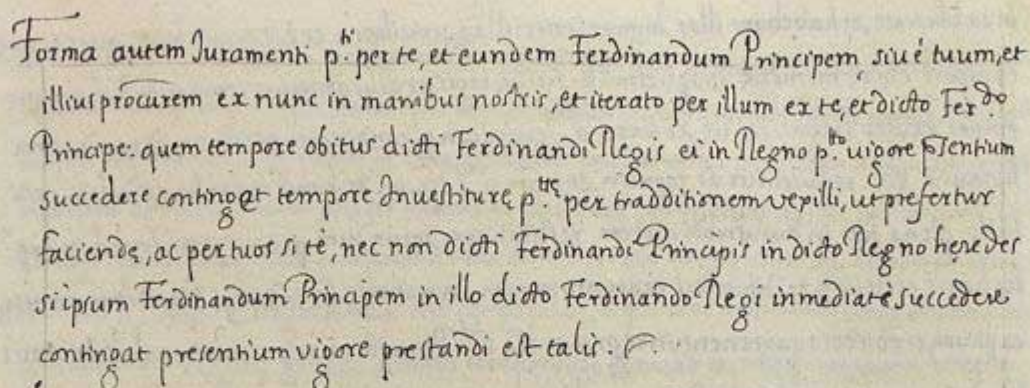 Forma autem Juramenti p.ti per te, et eundem Ferdinandum Principem, siuè tuum, et
illius procurem ex nunc in manibus nostris, et iterato per illum ex te, et dicto Fer.do
Principe: quem tempore obitus dicti Ferdinandi Regis ei in Regno p.to uigore p̄sentium
succedere contingat tempore Inuestiturę p.tę per tradditionem vexilli, ut prefertur
faciendę, ac per tuos si tè, nec non dicti Ferdinandi Principis in dicto Regno heredes
si ipsum Ferdinandum Principem in illo dicto Ferdinando Regi inmediatè succedere
contingat presentium vigore prestandi est talis.